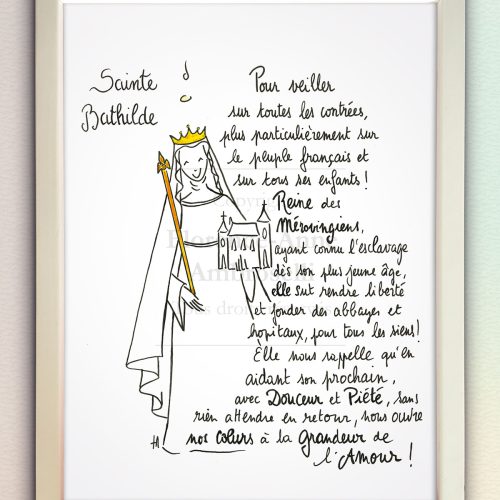 Sainte
Bathilde
Pour veiller
sur toutes les contrées,
plus particulièrement sur
le peuple français et
sur tous ses enfants !
Reine des
Mérovingiens,
ayant connu l'esclavage
dès son plus jeune âge,
elle sut rendre liberté
et fonder des abbayes et
hopitaux, pour tous les siens !
Elle nous rappelle qu'en
aidant son prochain,
avec Douceur et Piété, sans
rien attendre en retour, nous ouvre
nos cœurs à la Grandeur de
l'Amour !